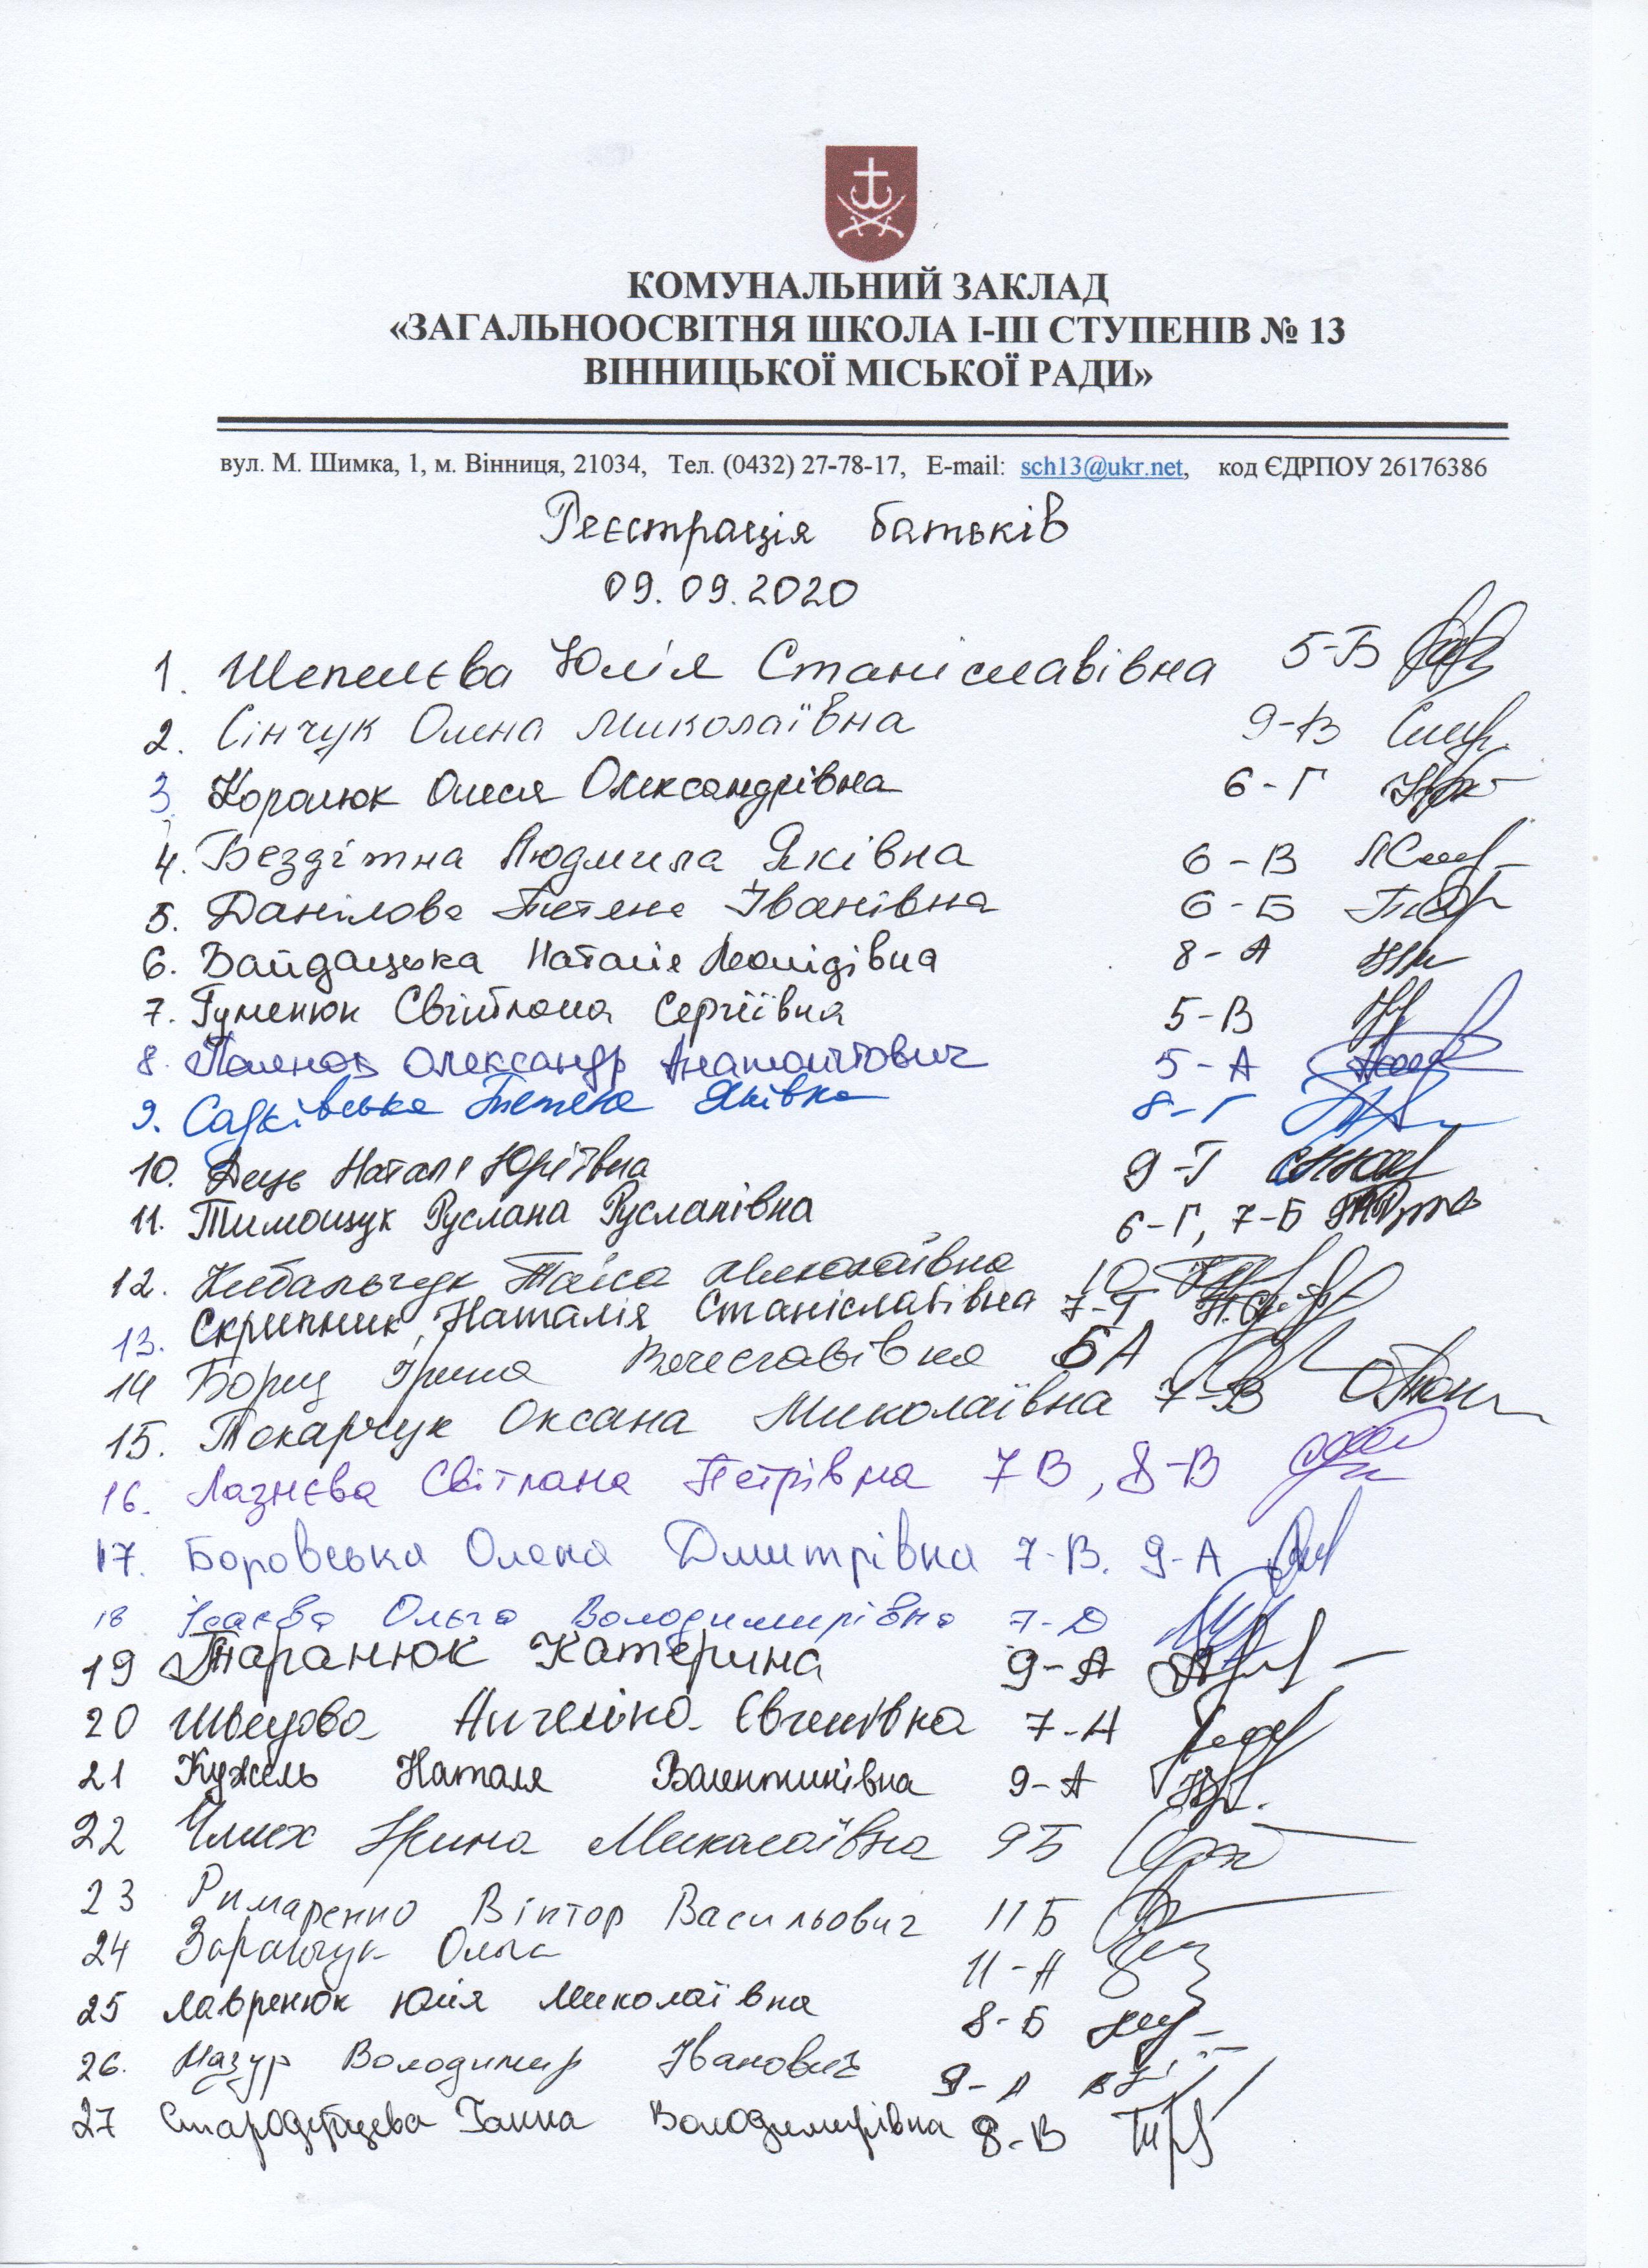 КОМУНАЛЬНИЙ ЗАКЛАД
«ЗАГАЛЬНООСВІТНЯ ШКОЛА І-ІІІ СТУПЕНІВ № 13
ВІННИЦЬКОЇ МІСЬКОЇ РАДИ»
вул. М. Шимка, 1, м. Вінниця, 21034, Тел. (0432) 27-78-17, E-mail: sch13@ukr.net, код ЄДРПОУ 26176386
Реєстрація батьків
09.09.2020
1. Шепелєва Юлія Станіславівна 5-Б
2. Сінчук Олена Миколаївна 9-В
3. Королюк Олеся Олександрівна 6-Г
4. Бездітна Людмила Яківна 6-В
5. Данілова Тетяна Іванівна 6-Б
6. Вайдацька Наталія Леонідівна 8-А
7. Гуменюк Світлана Сергіївна 5-В
8. Олександр Анатолійович 5-А
9. Садківська Тетяна Яківна 8-Г
10. Дець Наталя Юріївна 9-Г
11. Тимощук Руслана Русланівна 6-Г, 7-Б
12. Кибальчук Таїса Миколаївна 10
13. Скрипник Наталія Станіславівна 7-Г
14 Борщ Ірина Вячеславівна 5А
15. Токарчук Оксана Миколаївна 7-В
16. Лазнєва Світлана Петрівна 7В, 8-В
17. Боровська Олена Дмитрівна 7-В. 9-А
18 Ісаєва Ольга Володимирівна 7-Д
19 Таранюк Катерина 9-А
20 Швецова Ангеліна Євгенівна 7-А
21 Кужель Наталя Валентинівна 9-А
22 Ірина Миколаївна 9Б
23 Римаренко Віктор Васильович 11Б
24 Ольга 11-А
25 Лавренюк Юлія Миколаївна 8-Б
26. Мазур Володимир Іванович 9-А
27 Стародубцева Ганна Володимирівна 8-В